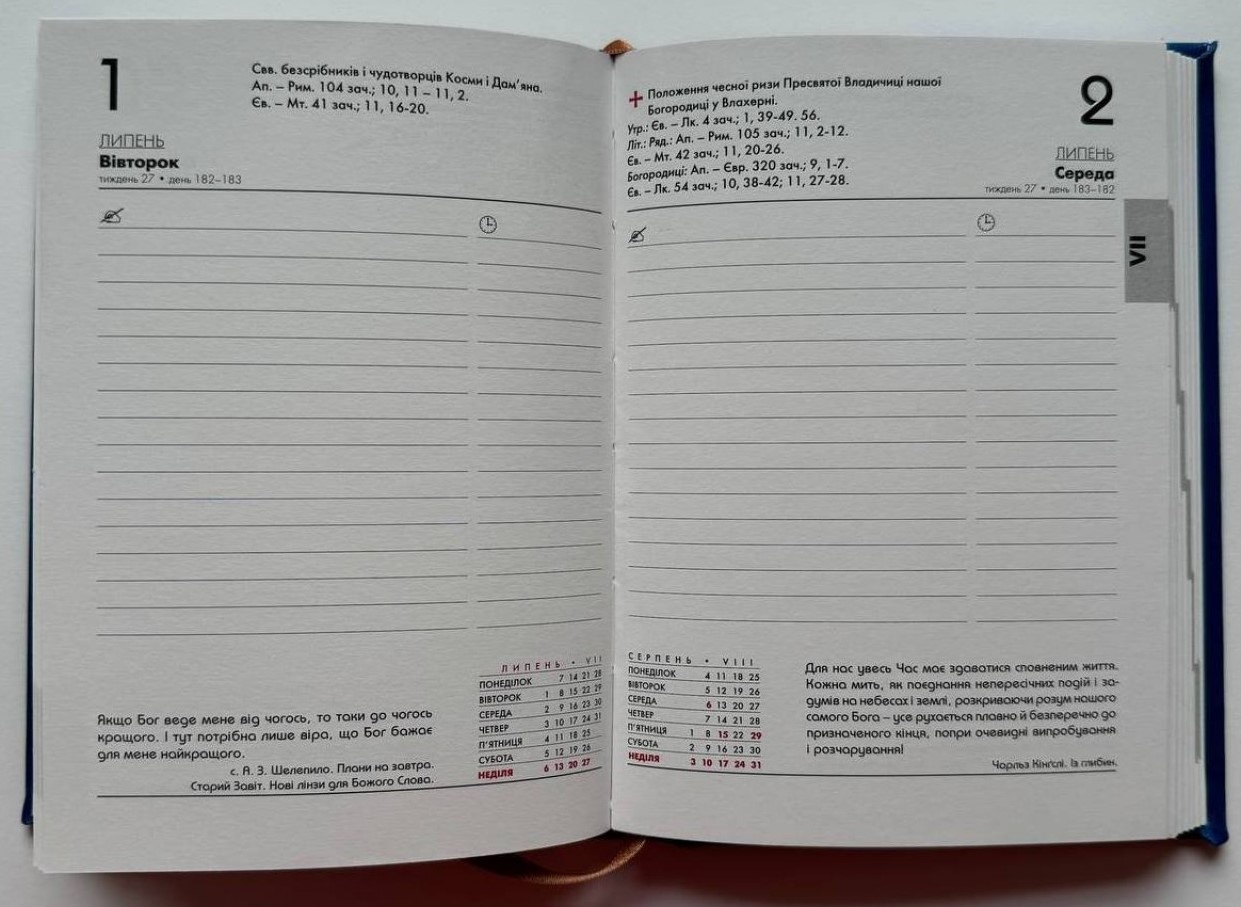 1
Свв. безсрібників і чудотворців Косми і Дам'яна.
Ап. – Рим. 104 зач.; 10, 11 – 11, 2.
Єв. – Мт. 41 зач.; 11, 16-20.
ЛИПЕНЬ
Вівторок
тиждень 27 • день 182–183
Якщо Бог веде мене від чогось, то таки до чогось
кращого. І тут потрібна лише віра, що Бог бажає
для мене найкращого.
с. А. З. Шелепило. Плани на завтра.
Старий Завіт. Нові лінзи для Божого Слова.
ЛИПЕНЬ • VII
ПОНЕДІЛОК 7 14 21 28
ВІВТОРОК 1 8 15 22 29
СЕРЕДА 2 9 16 23 30
ЧЕТВЕР 3 10 17 24 31
П'ЯТНИЦЯ 4 11 18 25
СУБОТА 5 12 19 26
НЕДІЛЯ 6 13 20 27
Положення чесної ризи Пресвятої Владичиці нашої
Богородиці у Влахерні.
Утр.: Єв. – Лк. 4 зач.; 1, 39-49. 56.
Літ.: Ряд.: Ап. – Рим. 105 зач.; 11, 2-12.
Єв. – Мт. 42 зач.; 11, 20-26.
Богородиці: Ап. – Євр. 320 зач.; 9, 1-7.
Єв. – Лк. 54 зач.; 10, 38-42; 11, 27-28.
2
ЛИПЕНЬ
Середа
тиждень 27 • день 183–182
VII
СЕРПЕНЬ • VIII
ПОНЕДІЛОК 4 11 18 25
ВІВТОРОК 5 12 19 26
СЕРЕДА 6 13 20 27
ЧЕТВЕР 7 14 21 28
П'ЯТНИЦЯ 1 8 15 22 29
СУБОТА 2 9 16 23 30
НЕДІЛЯ 3 10 17 24 31
Для нас увесь Час має здаватися сповненим життя.
Кожна мить, як поєднання непересічних подій і за-
думів на небесах і землі, розкриваючи розум нашого
самого Бога – усе рухається плавно й безперечно до
призначеного кінця, попри очевидні випробування
і розчарування!
Чарльз Кінґслі. Із глибин.